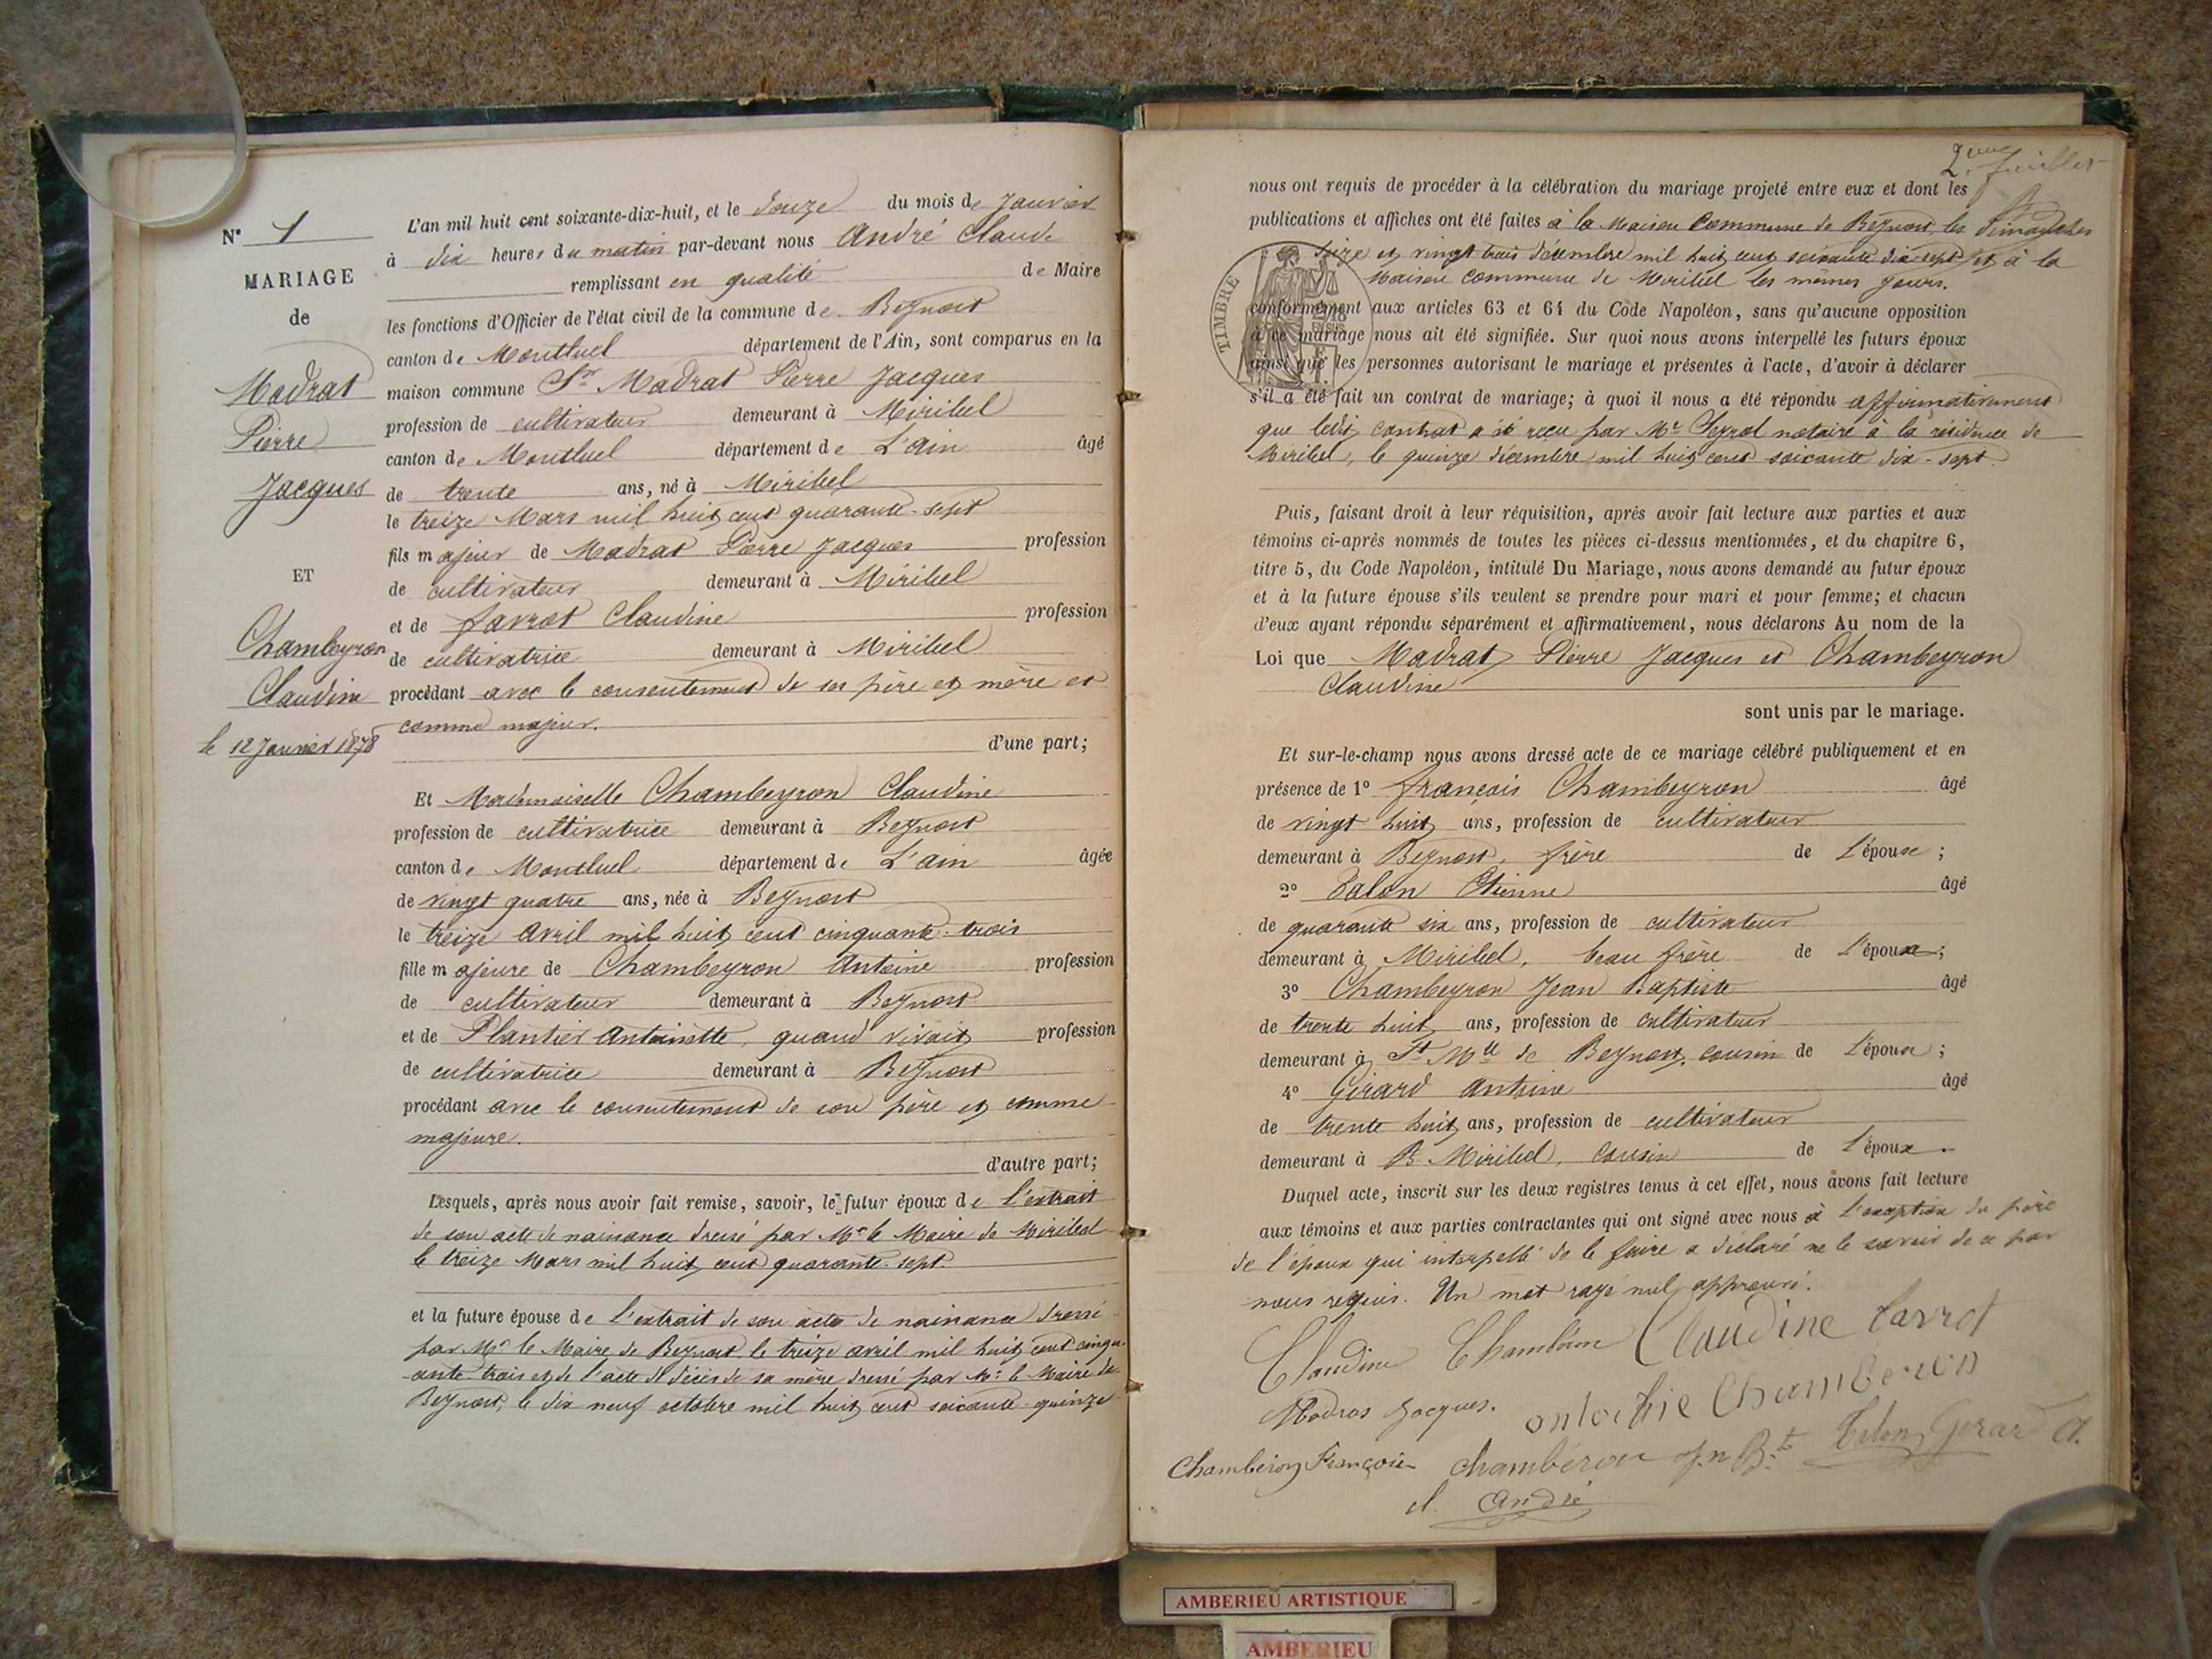 N° 1
MARIAGE
de
Madrat
Pierre
Jacques
ET
Chambeyron
Claudine
le 12 Janvier 1878
L'an mil huit cent soixante-dix-huit, et le douze du mois de Janvier
à dix heures du matin par-devant nous André Claude
remplissant en qualité de Maire
les fonctions d'Officier de l'état civil de la commune de Beynost
canton de Montluel département de l'Ain, sont comparus en la
maison commune Sr Madrat Pierre Jacques
profession de cultivateur demeurant à Miribel
canton de Montluel département de L'ain âgé
de trente ans, né à Miribel
le treize Mars mil huit cent quarante-sept
fils majeur de Madrat Pierre Jacques profession
de cultivateur demeurant à Miribel
et de favrot Claudine profession
de cultivatrice demeurant à Miribel
procédant avec le consentement de ses père et mère et
comme majeur.
d'une part;
Et Mademoiselle Chambeyron Claudine
profession de cultivatrice demeurant à Beynost
canton de Montluel département de L'ain âgée
de vingt quatre ans, née à Beynost
le treize avril mil huit cent cinquante-trois
fille majeure de Chambeyron Antoine profession
de cultivateur demeurant à Beynost
et de Plantier Antoinette, quand vivait profession
de cultivatrice demeurant à Beynost
procédant avec le consentement de son père et comme
majeure.
d'autre part;
Lesquels, après nous avoir fait remise, savoir, le futur époux de l'extrait
de son acte de naissance dressé par Mr le Maire de Miribel
le treize Mars mil huit cent quarante-sept.
et la future épouse de l'extrait de son acte de naissance dressé
par Mr le Maire de Beynost le treize avril mil huit cent cinqu-
-ante trois et de l'acte de décès de sa mère dressé par Mr le Maire de
Beynost, le dix neuf octobre mil huit cent soixante-quinze
2eme feuillet
nous ont requis de procéder à la célébration du mariage projeté entre eux et dont les
publications et affiches ont été faites à la Maison Commune de Beynost, les dimanches
seize et vingt trois décembre mil huit cent soixante dix-sept et à la
Maison commune de Miribel les mêmes jours.
TIMBRE
conformément aux articles 63 et 64 du Code Napoléon, sans qu'aucune opposition
à ce mariage nous ait été signifiée. Sur quoi nous avons interpellé les futurs époux
ainsi que les personnes autorisant le mariage et présentes à l'acte, d'avoir à déclarer
s'il a été fait un contrat de mariage; à quoi il nous a été répondu affirmativement
que ledit contrat a été reçu par Mr Peyrol notaire à la résidence de
Miribel, le quinze décembre mil huit cent soixante dix-sept.
Puis, faisant droit à leur réquisition, après avoir fait lecture aux parties et aux
témoins ci-après nommés de toutes les pièces ci-dessus mentionnées, et du chapitre 6,
titre 5, du Code Napoléon, intitulé Du Mariage, nous avons demandé au futur époux
et à la future épouse s'ils veulent se prendre pour mari et pour femme; et chacun
d'eux ayant répondu séparément et affirmativement, nous déclarons Au nom de la
Loi que Madrat Pierre Jacques et Chambeyron
Claudine
sont unis par le mariage.
Et sur-le-champ nous avons dressé acte de ce mariage célébré publiquement et en
présence de 1° françois Chambeyron âgé
de vingt huit ans, profession de cultivateur
demeurant à Beynost, frère de L'épouse ;
2° Talon Etienne âgé
de quarante six ans, profession de cultivateur
demeurant à Miribel, beau frère de L'époux ;
3° Chambeyron Jean Baptiste âgé
de trente huit ans, profession de cultivateur
demeurant à St Mce de Beynost, cousin de L'épouse ;
4° Girard Antoine âgé
de trente huit ans, profession de cultivateur
demeurant à B Miribel, cousin de L'époux.
Duquel acte, inscrit sur les deux registres tenus à cet effet, nous avons fait lecture
aux témoins et aux parties contractantes qui ont signé avec nous à l'exception du père
de l'époux qui interpellé de le faire a déclaré ne le savoir de ce par
nous requis. Un mot rayé nul approuvé.
Claudine Claudine favrot
Madras Jacques. Chamberon
Chamberon François chambéron Jn Bte Talon Girard A.
cl. André
AMBERIEU ARTISTIQUE
AMBERIEU